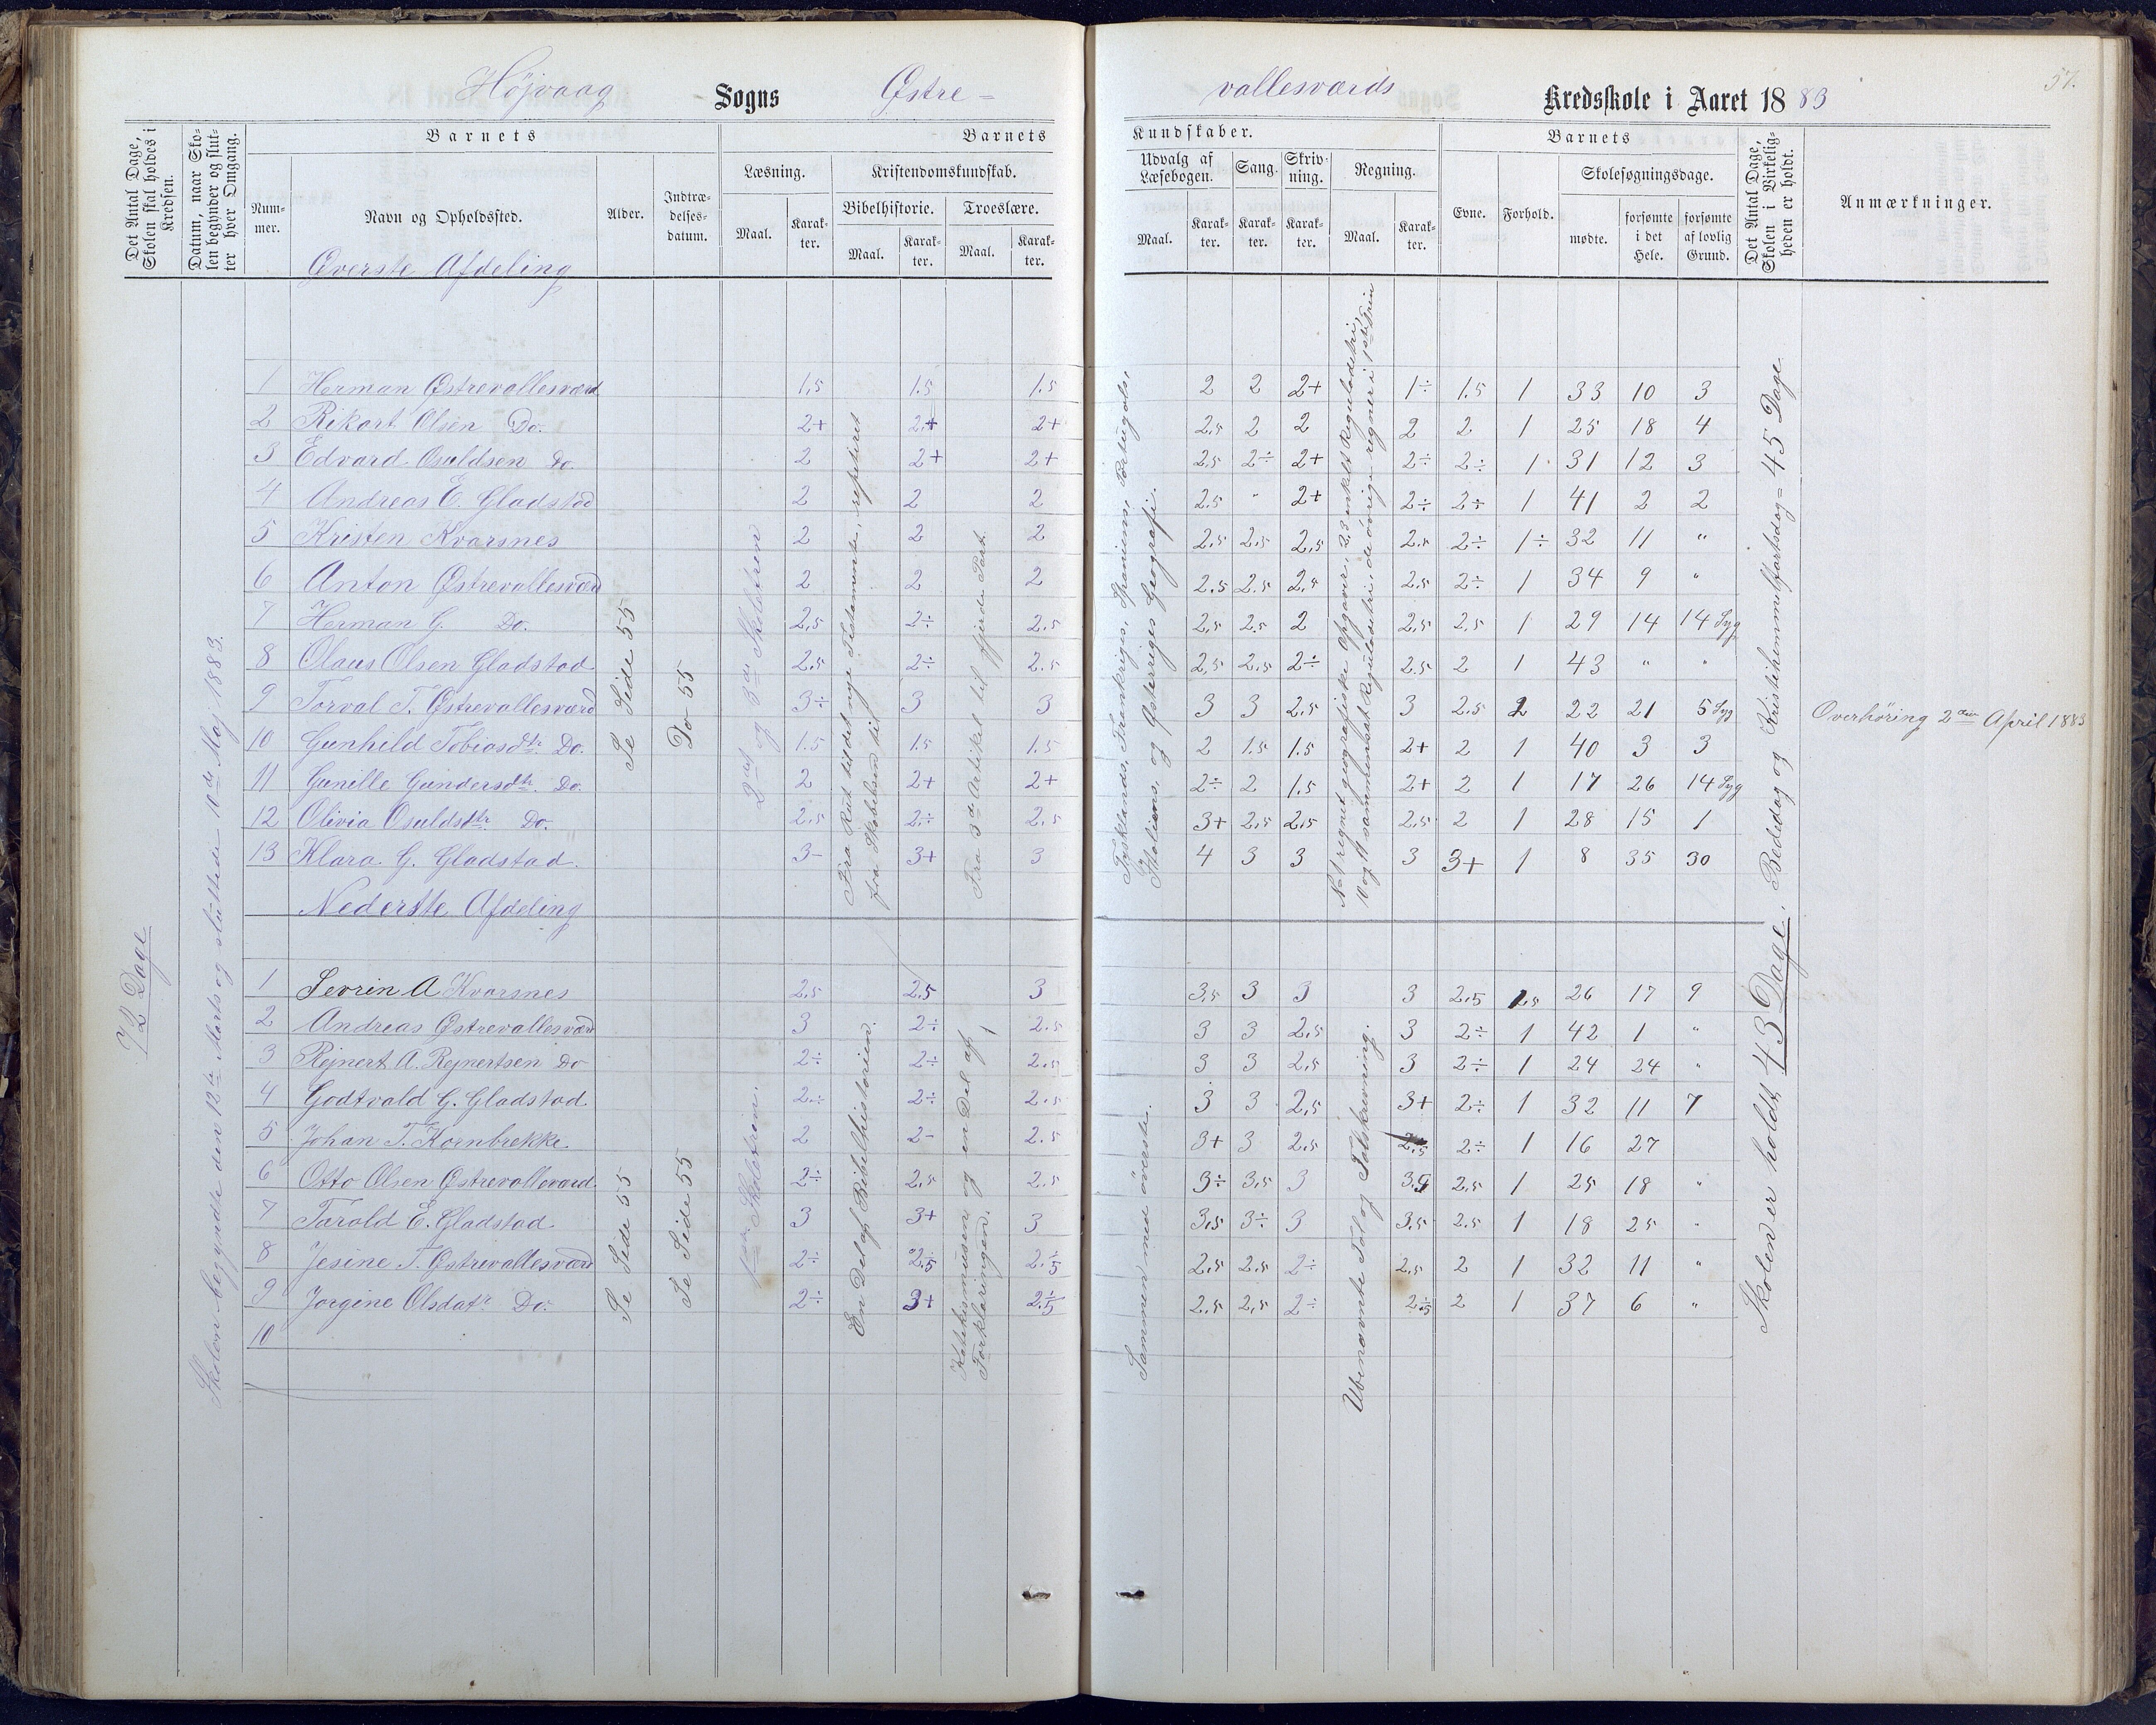 Højvaag Sogns Østre-
vallesværds Kredsskole i Aaret 1883
57.
Det Antal Dage, Skolen skal holdes i Kredsen.
Datum, naar Skolen begynder og slutter hver Omgang.
Barnets
Nummer.
Navn og Opholdssted.
Alder.
Indtrædelsesdatum.
Barnets Kundskaber.
Læsning.
Maal.
Karakter.
Kristendomskundskab.
Bibelhistorie.
Maal.
Karakter.
Troeslære.
Maal.
Karakter.
Udvalg af Læsebogen.
Maal.
Karakter.
Sang.
Karakter.
Skrivning.
Karakter.
Regning.
Maal.
Karakter.
Barnets
Evne.
Forhold.
Skolesøgningsdage.
mødte.
forsømte i det Hele.
forsømte af lovlig Grund.
Det Antal Dage, Skolen i Virkeligheden er holdt.
Anmærkninger.
72 Dage
Skolen begyndte den 12te Marts og sluttede 10de Maj 1883.
Øverste Afdeling
1 Herman Østrevallesværd 1.5 1.5 1.5 2 2 2+ 1÷ 1.5 1 33 10 3
2 Rikart Olsen Do. 2+ 2+ 2+ 2.5 2 2 2 2 1 25 18 4
3 Edvard Osuldsen Do. 2 2+ 2+ 2.5 2÷ 2+ 2÷ 2÷ 1 31 12 3
4 Andreas E. Gladstad 2 2 2 2.5 " 2+ 2÷ 2÷ 1 41 2 2
5 Kristen Kvarsnes 2 2 2 2.5 2.5 2.5 2.5 2÷ 1÷ 32 11 "
6 Anton Østrevallesværd 2 2 2 2.5 2.5 2.5 2.5 2÷ 1 34 9 "
7 Herman G. Do. 2.5 2÷ 2.5 2.5 2.5 2 2.5 2.5 1 29 14 14 Syg
8 Olaus Olsen Gladstad 2.5 2÷ 2.5 2.5 2.5 2÷ 2.5 2 1 43 " "
9 Torval T. Østrevallesværd 3÷ 3 3 3 3 2.5 3 2.5 2 22 21 5 Syg
10 Gunhild Tobiasdtr Do. 1.5 1.5 1.5 2 1.5 1.5 2+ 2 1 40 3 3
11 Gunille Gundersdtr. Do. 2 2+ 2+ 2÷ 2 1.5 2+ 2 1 17 26 14 Syg
12 Olivia Osuldsdtr. Do. 2.5 2÷ 2.5 3+ 2.5 2.5 2.5 2 1 28 15 1
13 Klara G. Gladstad. 3- 3+ 3 4 3 3 3 3+ 1 8 35 30
Se Side 55
Do 55
2det og 3die Skoletrin
Fra Rut til det nye Testamente, repeteret
fra Skabelsen til
Fra 3die Artikel til fjerde Part.
Tysklands, Frankriges, Spaniens, Portugals,
Italiens, og Østerriges Geografi.
No 1 regnet geografiske Opgaver, 2,3 enkelt Reguladetri,
10 og 11 sammensat Reguladetri, de övrige regner i 1ste Trin
Overhöring 2den April 1883
Nederste Afdeling
1 Sevrin A Kvarsnes 2.5 2.5 3 3.5 3 3 3 2.5 1.5 26 17 9
2 Andreas Østrevallesværd 3 2÷ 2.5 3 3 2.5 3 2÷ 1 42 1 "
3 Rejnert A. Rejnertsen Do 2÷ 2÷ 2.5 3 3 2.5 3 2÷ 1 24 24 "
4 Godtvald G. Gladstad 2÷ 2÷ 2.5 3 3 2.5 3+ 2÷ 1 32 11 7
5 Johan T. Kornbrekke. 2 2- 2.5 3+ 3 2.5 2.5 2÷ 1 16 27
6 Otto Olsen Østrevalleværd 2÷ 2.5 2.5 3÷ 3.5 3 3.5 2.5 1 25 18 "
7 Tarald E. Gladstad 3 3+ 3 3.5 3÷ 3 3.5 2.5 1 18 25 "
8 Jesine T. Østrevallesværd 2÷ 2.5 2.5 2.5 2.5 2÷ 2.5 2 1 32 11 "
9 Jorgine Olsdatr. Do. 2÷ 3+ 2.5 2.5 2.5 2÷ 2.5 2 1 37 6 "
10
Se Side 55
Se Side 55
1ste Skoletrin.
En Del af Bibelhistorien.
Katekismusen og en Del af
Forklaringen.
Sammen med överste.
Ubenævnte Tal og Talskrivning.
Skolen er holdt 43 Dage. Bededag og Kristihemmelfartsdag = 45 Dage